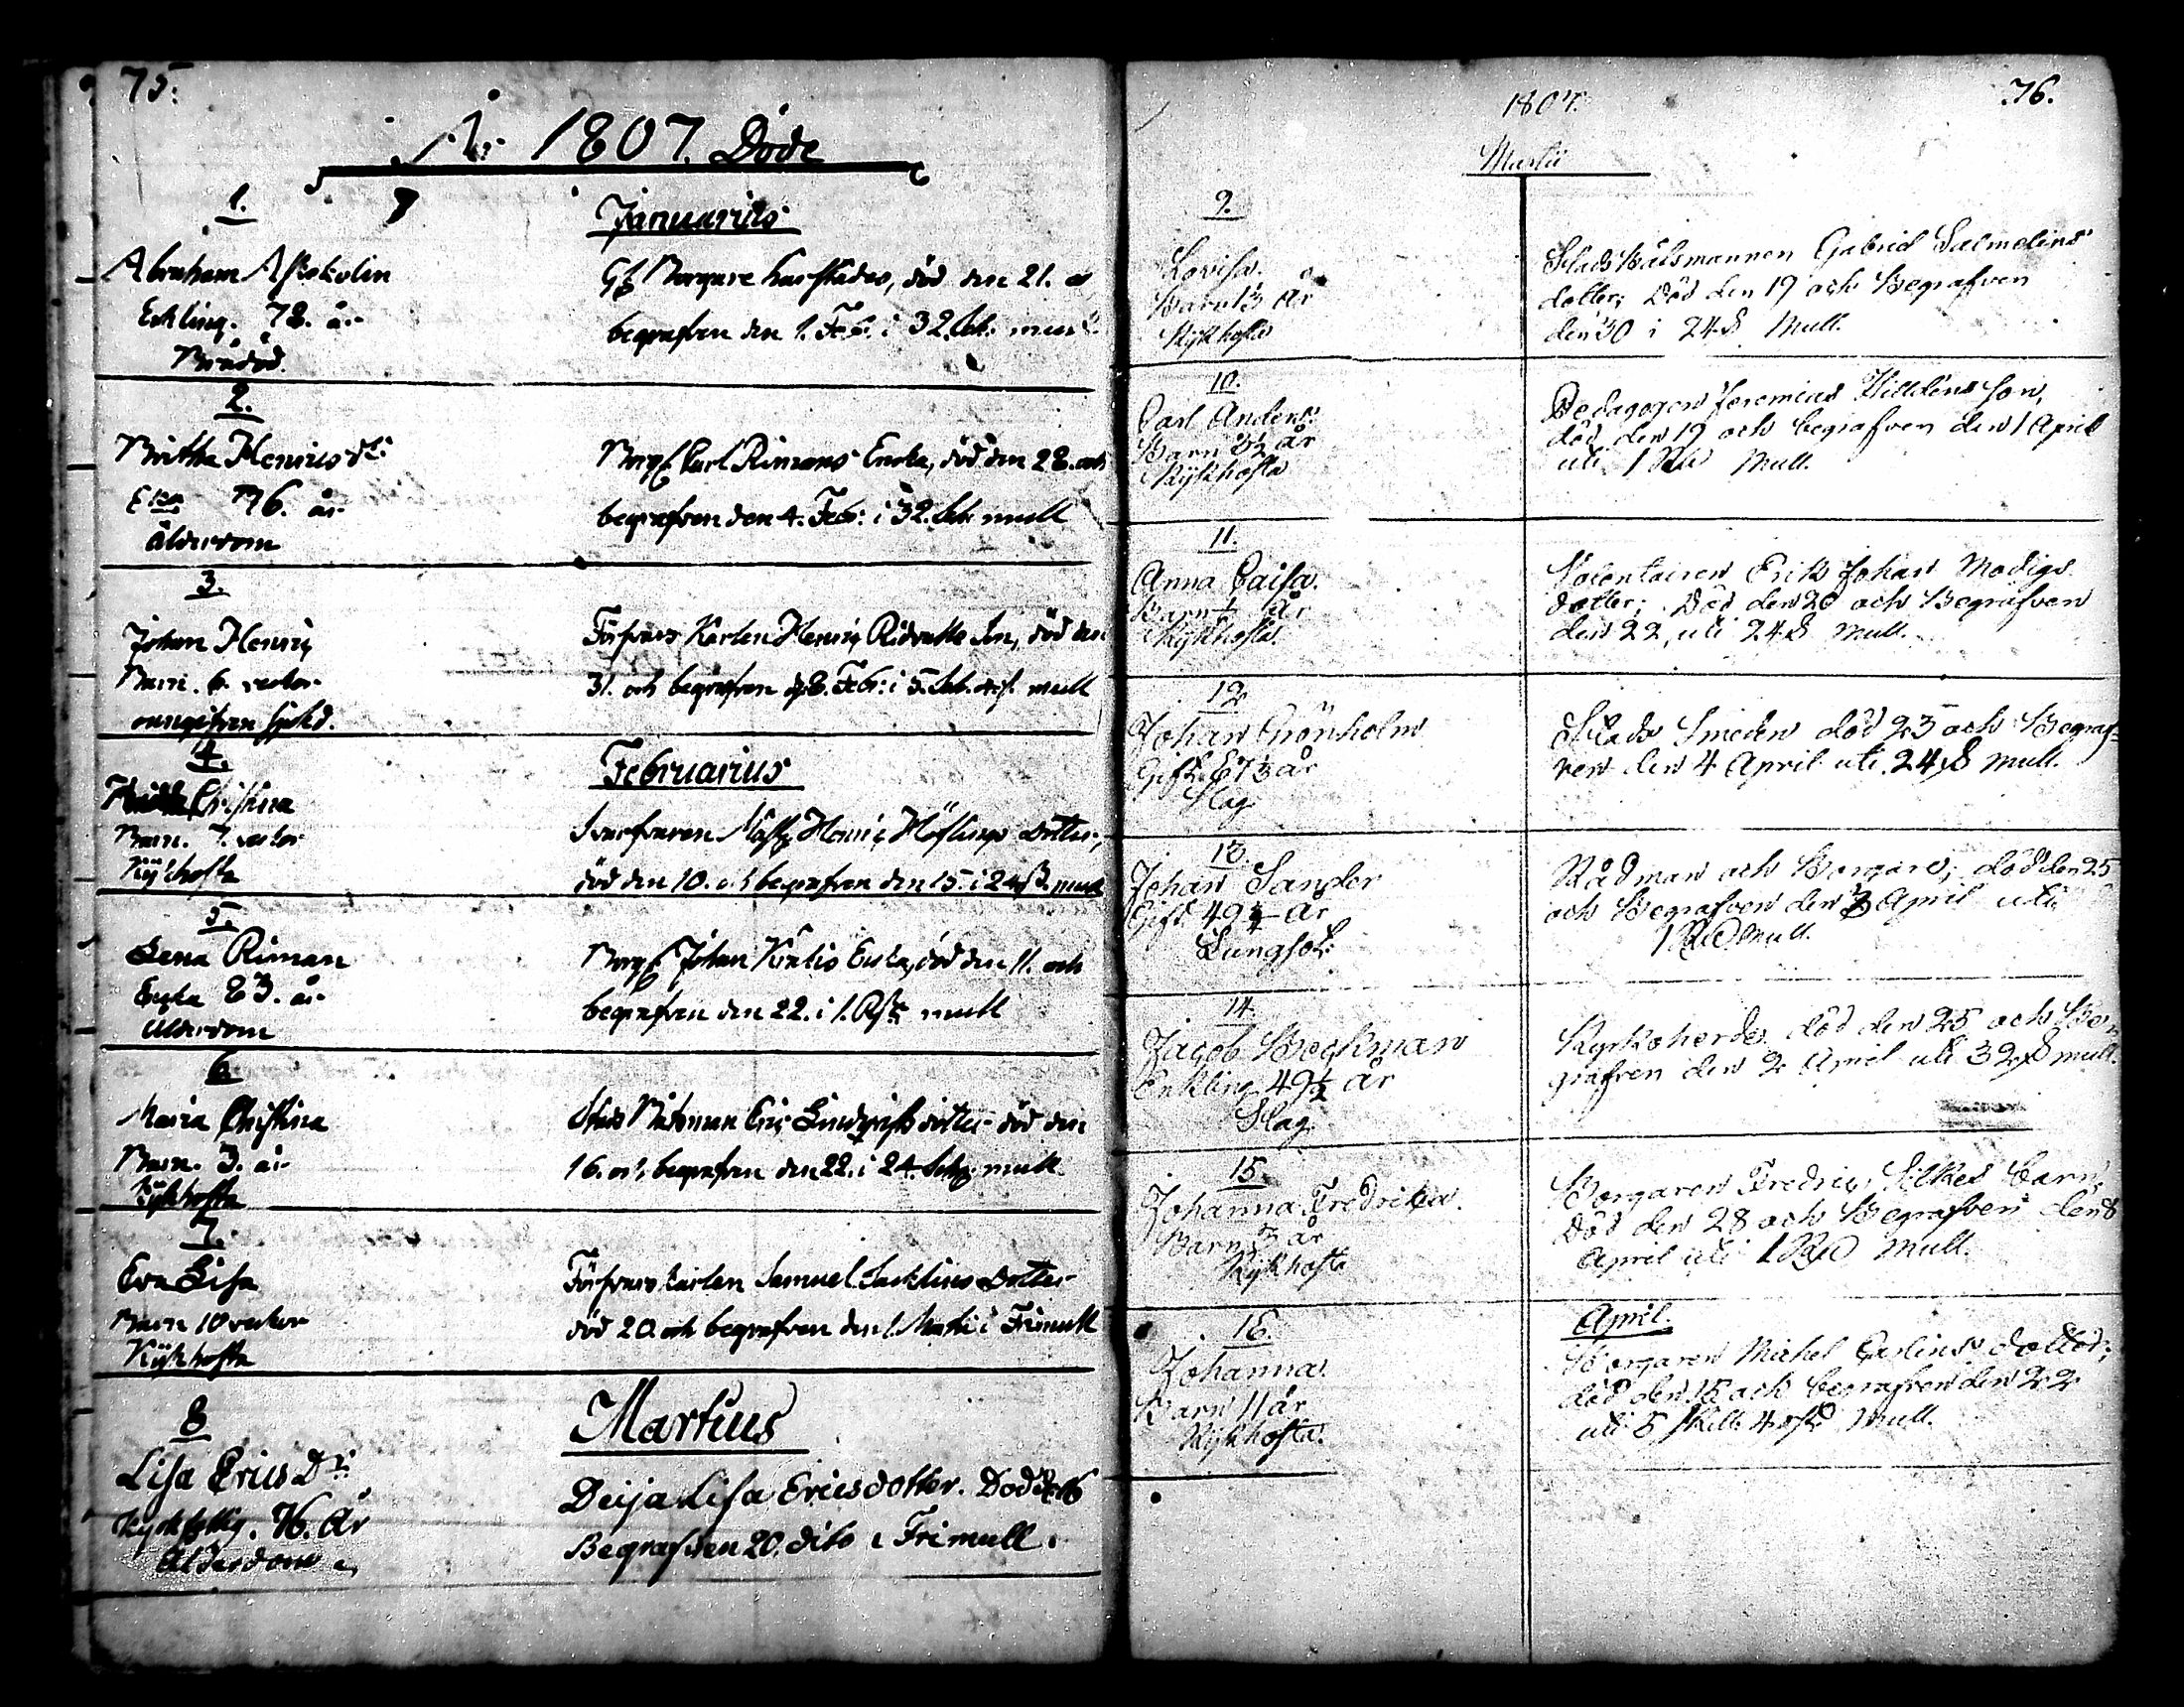 75.
År 1807. Döde
1.
Januarius
Abraham
Enkling. 78. år
Bråddöd.
Gl. Borgare har städes, död den 21. o
begrafven den 1. Feb. i 32. sch. mull
2.
Britha Henricsdr:
Enka 76. år
Ålderdom
Borg. Carl Rimans Enka, död den 28. och
begrafven den 4. Febr: i 32. sch mull
3.
Johan Henric
Barn. 6. veckor
onngifven sjukd.
Försvars Karlen Henric Son, död den
31. och begrafven d. 8. Febr: i 5. sch. mull
4.
Februarius
Christina
Barn. 7. veckor
Kijkhosta
Svarfvaren Mäst. Henric Höflings Dotter,
död den 10. och begrafven den 15. i 24 sk. mull
5.
Lena Riman
Enka 83. år
Ålderdom
Borg. Johan Enka, död den 11. och
begrafven den 22. i 1. Rd mull
6.
Maria Christina
Barn. 3. år
Kijkhosta
Stads Eric Lindqvists dotter död den
16. och begrafven den 22. i 24. sch: mull
7.
Eva Lisa
Barn 10 veckor
Kijkhosta
Försvarskarlen Samuel Dotter
död 20. och begrafven den 1. Martii i Frimull
8
Martius
Lisa Erics Dr.
76. År
Ålderdom
Deija Lisa Ericsdotter. Död d. 16
Begrafven 20. dito i Frimull.
76.
1807.
Martii
9.
Lovisa.
Barn 1 3/4 År
Kijkhosta
Gabriel Salmelins
dotter; Död den 19 och Begrafven
den 30 i 24 s Mull.
10.
Carl Anders.
Barn år
Kijkhosta
Pedagogen Jeremias son,
död den 19 och begrafven den 1 April
uti 1 Rd Mull.
11.
Anna Caisa.
Barn År
Kijkhosta.
Volontairen Erik Johan Modigs
dotter; Död den 20 och Begrafven
den 22, uti 24 s Mull.
12
Johan Grönholm
Gift 67 år
Slag
Stads Smeden död 23 och Begraf-
ven den 4 April uti 24 s Mull.
13.
Johan Sander
Gift 49 1/4 År
Lungsot:
Rådman och Borgare; död den 25
och Begrafven den 3 April uti
1 Rd Mull.
14.
Jacob Beckman
Enkling 49 1/2 år
Slag
Kyrkoherde död den 25 och Be-
grafven den 2 April uti 32 s mull.
15.
Johanna Fredrika.
Barn år
Kijkhosta
Borgaren Fredric Silkes barn,
Död den 28 och Begrafven den 8
April uti 1 Rd Mull.
16.
April.
Johanna.
Barn 11 år
Kijkhosta.
Borgaren Michel Carlins dotter;
död den 15 och begrafven den 22
uti 5 skill 4 rst Mull.